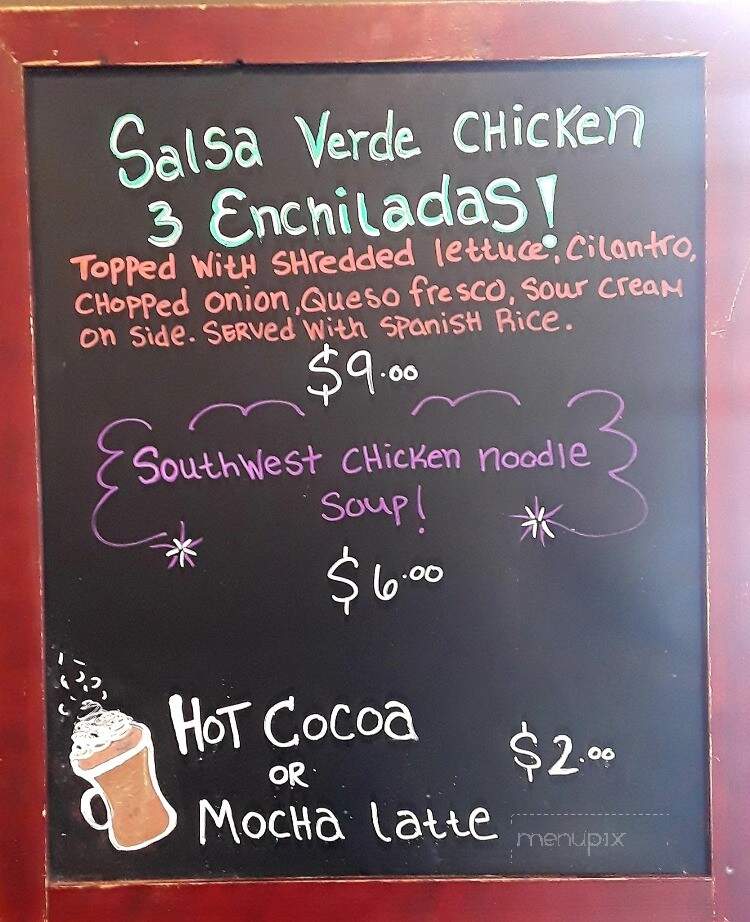 Salsa Verde Chicken
3 Enchiladas!
Topped With Shredded lettuce, Cilantro,
Chopped onion, Queso fresco, Sour Cream
on Side. Served With Spanish Rice.
$9.00
Southwest Chicken noodle
Soup!
$6.00
Hot Cocoa
or
Mocha latte
$2.00
menupix